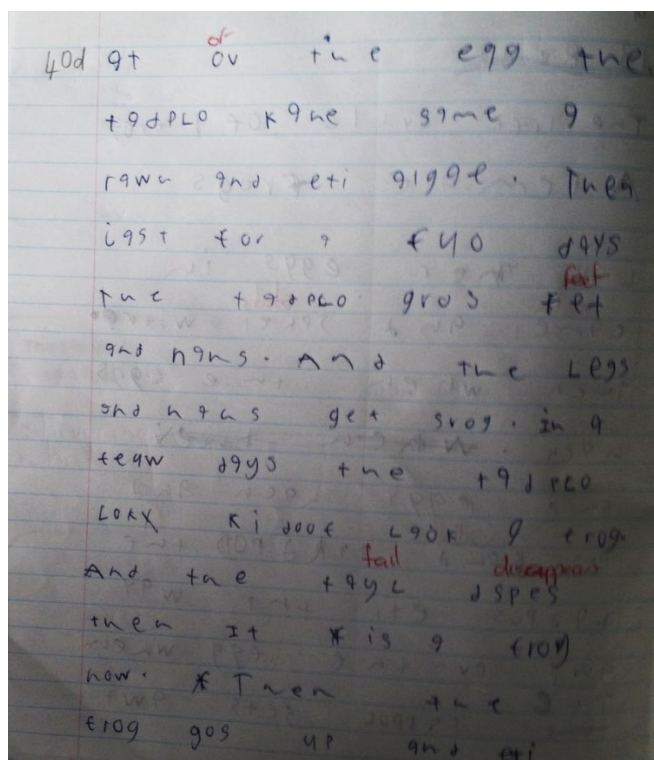 40d gt ov of the egg. the
tadpLo kane same a
rawn and eti algae. Then
iast for a fyo days
the tadpLo gros fet feet
and hans. And the Legs
and hans get srog. in a
feaw days the tadpLo
Lok ki doof Laok a frog.
And the tayL tail dspes disappears
then It is a frog
now. Then the
frog gos up and eti